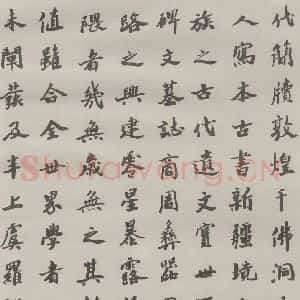 代簡牘敦煌千佛洞
人寫本古書新疆境
族之古代遺文實世
碑文墓誌商周彝器
路之興建零星暴露
隈者幾無歲無之其
值雖合全世界學者
未闡發及半上虞羅
Shufawang.CN